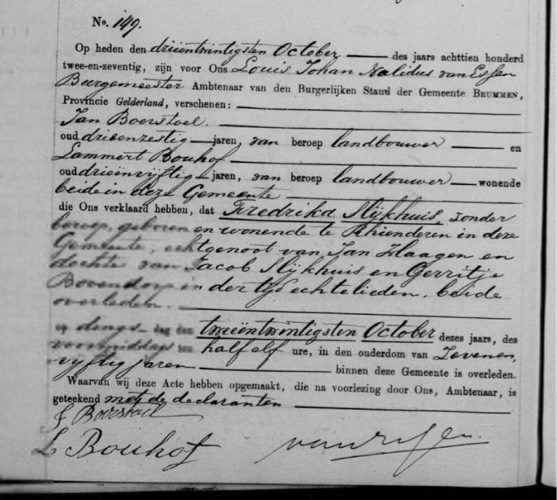 No. 149.
Op heden den drieëntwintigsten October des jaars achttien honderd
twee-en-zeventig, zijn voor Ons Louis Johan Nalidus van Essen
Burgemeester Ambtenaar van den Burgerlijken Stand der Gemeente BRUMMEN,
Provincie Gelderland, verschenen:
Jan Boerstoel.
oud drieenzestig jaren, van beroep landbouwer en
Lammert Bouhof
oud drieënvijftig jaren, van beroep landbouwer wonende
beide in deze Gemeente
die Ons verklaard hebben, dat Fredrika Slijkhuis, zonder
beroep, geboren en wonende te Rhienderen in deze
Gemeente, echtgenoot van Jan Haagen en
dochter van Jacob Slijkhuis en Gerritje
Bovendorp in der tijd echtelieden, beide
overleden.
op dings- dag den tweeëntwintigsten October dezes jaars, des
voormiddags ten half elf ure, in den ouderdom van Zevenen
vijftig jaren binnen deze Gemeente is overleden.
Waarvan wij deze Acte hebben opgemaakt, die na voorlezing door Ons, Ambtenaar, is
geteekend met de declaranten
J Boerstoel
L Bouhof van Essen.